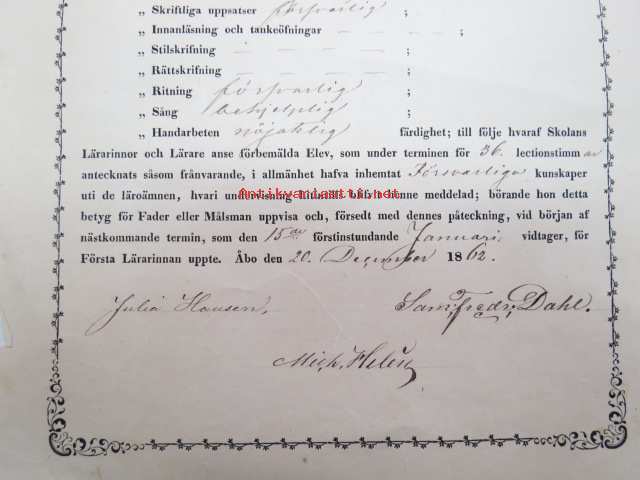 „ Skriftliga uppsatser försvarlig ;
„ Innanläsning och tankeöfningar — — — — ;
„ Stilskrifning — — — — ;
„ Rättskrifning — — — — ;
„ Ritning försvarlig ;
„ Sång behjelplig ;
„ Handarbeten nöjaktig färdighet; till följe hvaraf Skolans
Lärarinnor och Lärare anse förbemälda Elev, som under terminen för 36. lectionstimmar
antecknats såsom frånvarande, i allmänhet hafva inhemtat Försvarliga kunskaper
uti de läroämnen, hvari undervisning blifvit henne meddelad; börande hon detta
Antikvariaatti.net
betyg för Fader eller Målsman uppvisa och, försedt med dennes påteckning, vid början af
nästkommande termin, som den 15de förstinstundande Januari vidtager, för
Första Lärarinnan uppte. Åbo den 20. December 1862.
Julia Hausen.
Sam. Fredr. Dahl.
Mich. Helin